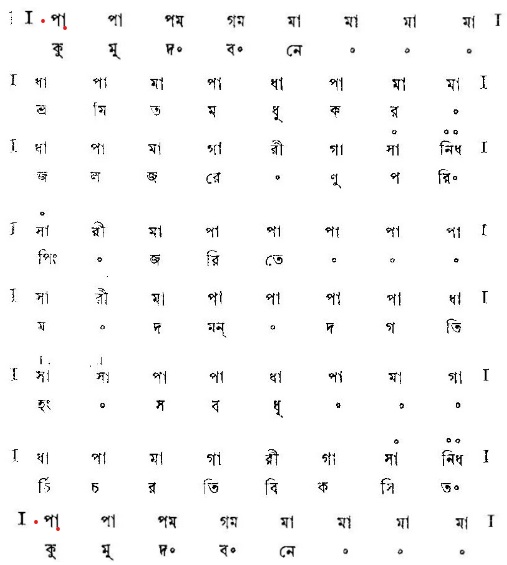 I পা পা পম গম মা মা মা মা I
কু মু দ॰ ব॰ নে ॰ ॰ ॰
I ধা পা মা পা ধা পা মা মা I
ভ্র মি ত ম ধু ক র ॰
॰ ॰॰
I ধা পা মা গা রী গা সা নিধ I
জ ল জ রে ॰ ণু প রি॰
॰
I সা রী মা পা পা পা পা পা I
পিং ॰ জ রি তে ॰ ॰ ॰
I সা রী মা পা পা পা পা ধা I
ম ॰ দ মন্ ॰ দ গ তি
I সা সা পা পা ধা পা মা গা I
হং ॰ স ব ধূ ॰ ॰ ॰
॰ ॰॰
I ধা পা মা গা রী গা সা নিধ I
চ র তি বি ক সি ত॰
I পা পা পম গম মা মা মা মা I
কু মু দ॰ ব॰ নে ॰ ॰ ॰